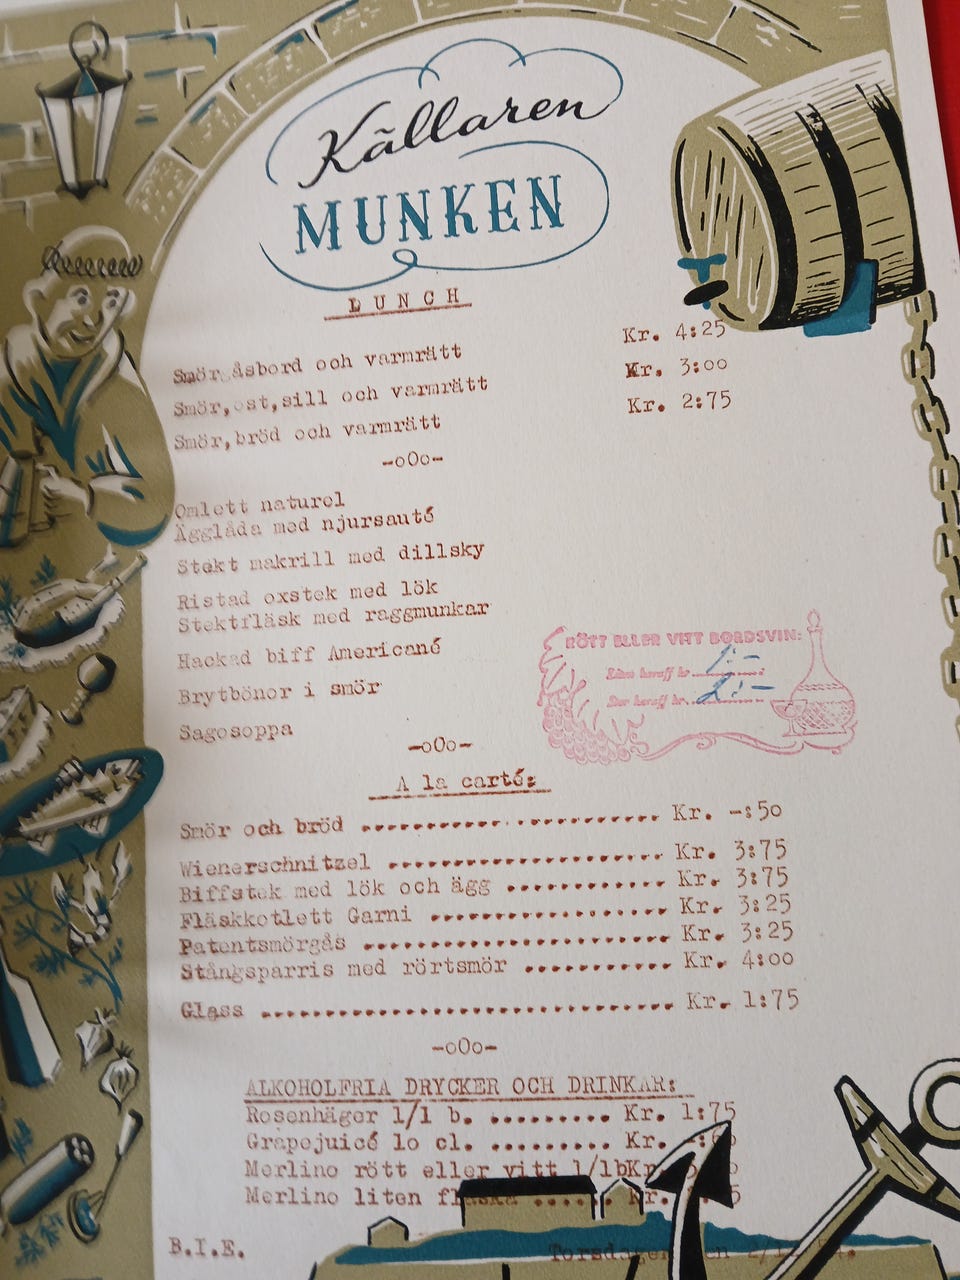 Källaren
MUNKEN
LUNCH
Smörgåsbord och varmrätt Kr. 4:25
Smör,ost,sill och varmrätt Kr. 3:00
Smör,bröd och varmrätt Kr. 2:75
-oOo-
Omlett naturel
Ägglåda med njursauté
Stekt makrill med dillsky
Ristad oxstek med lök
Stektfläsk med raggmunkar
Hackad biff Americané
Brytbönor i smör
Sagosoppa
RÖTT ELLER VITT BORDSVIN:
Liten karaff kr. 1:-
Stor karaff kr. 2:-
-oOo-
A la carté:
Smör och bröd .......................... Kr. -:50
Wienerschnitzel ........................ Kr. 3:75
Biffstek med lök och ägg ............ Kr. 3:75
Fläskkotlett Garni .................. Kr. 3:25
Patentsmörgås ........................ Kr. 3:25
Stångsparris med rörtsmör ........... Kr. 4:00
Glass ................................. Kr. 1:75
-oOo-
ALKOHOLFRIA DRYCKER OCH DRINKAR:
Rosenhäger 1/1 b. .......... Kr. 1:75
Grapejuicé 1o cl. .......... Kr.
Merlino rött eller vitt 1/1bKr.
Merlino liten flaska ...... Kr.
B.I.E.
Torsdagen den